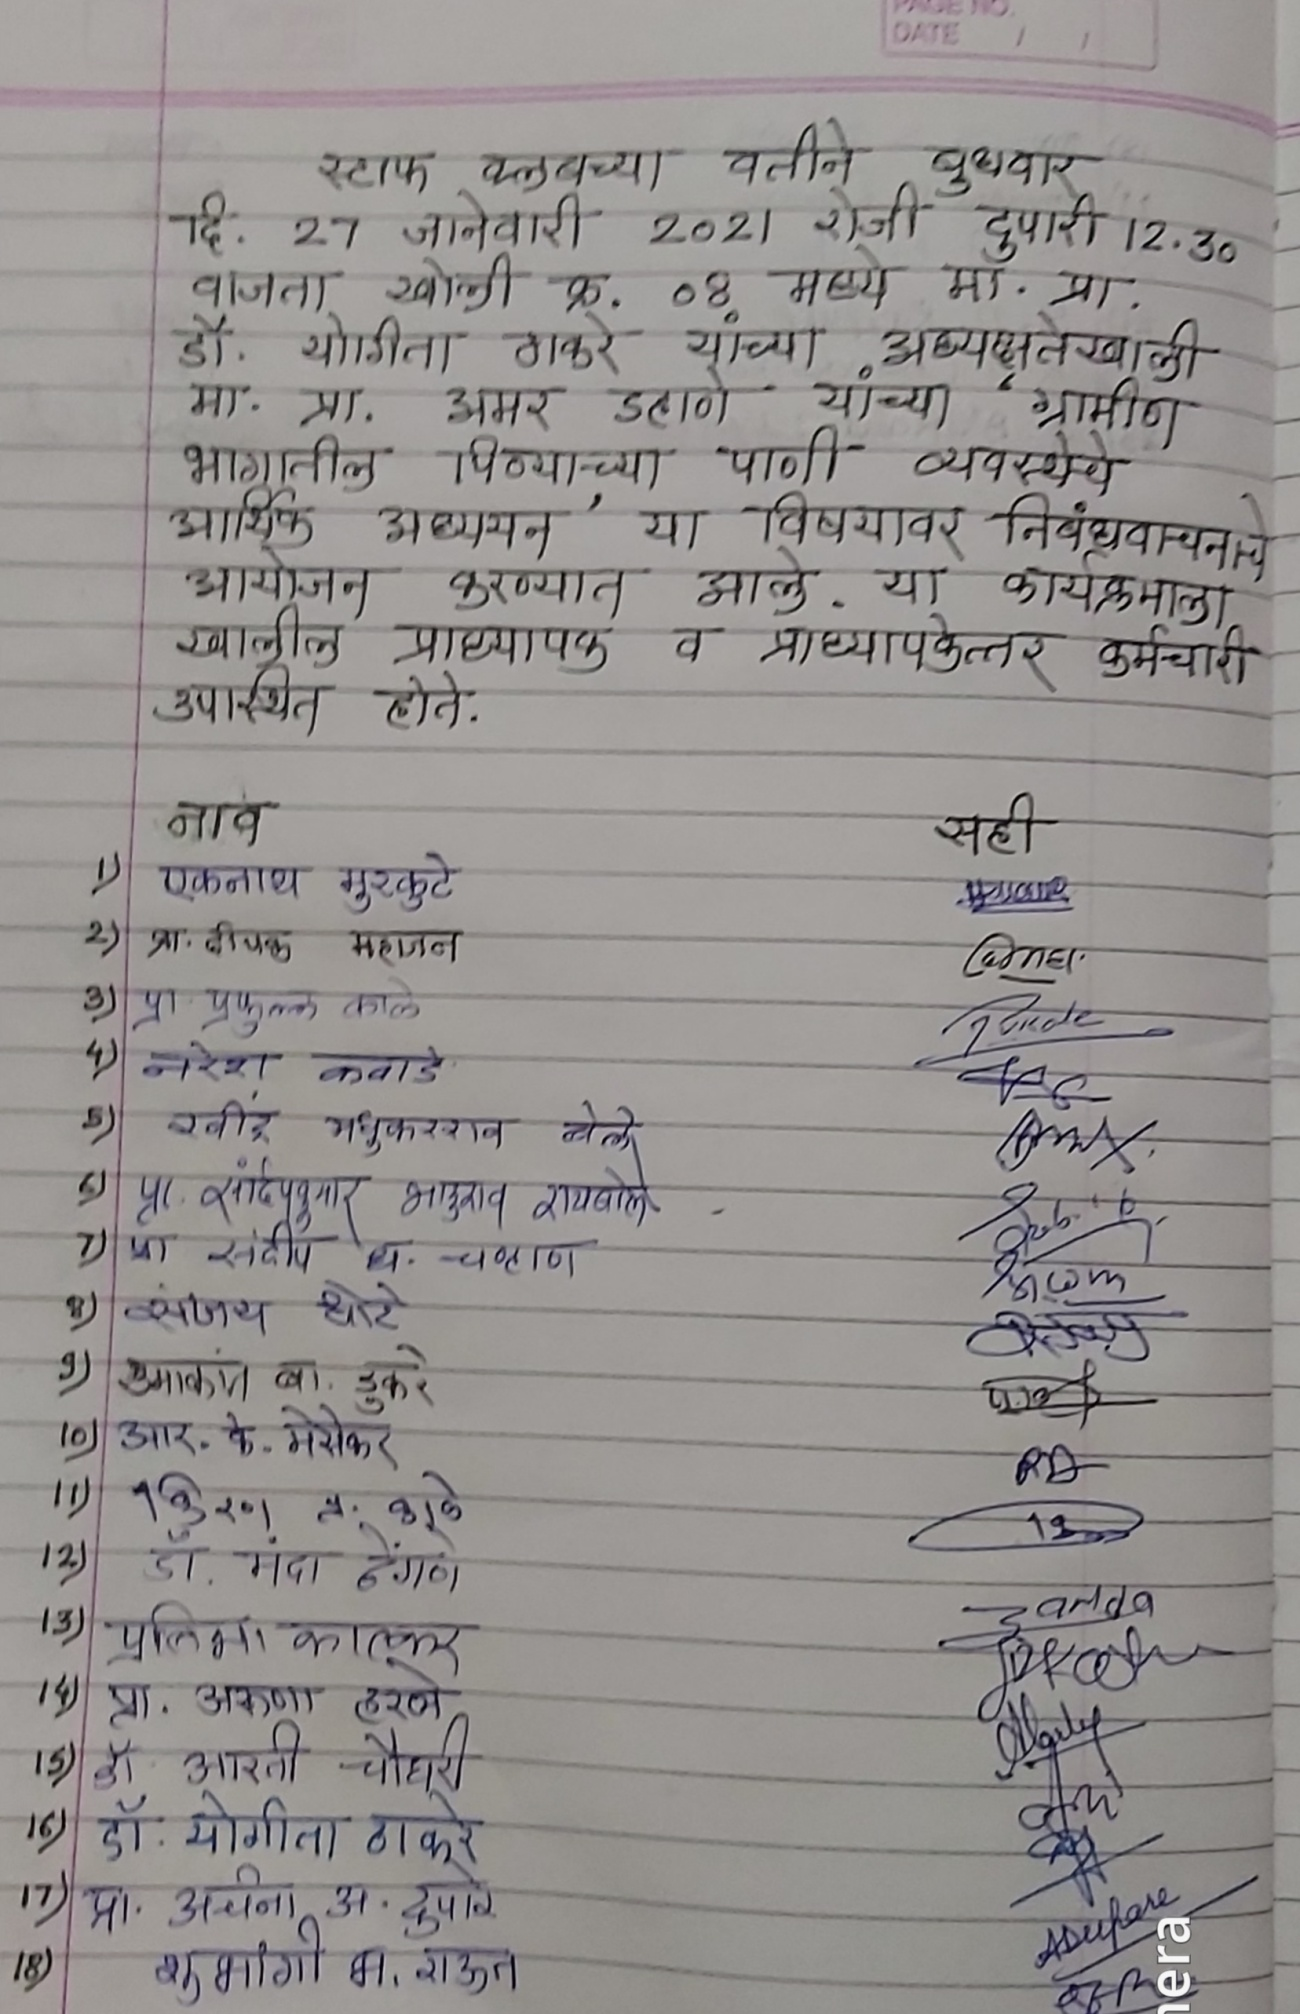 PAGE NO.
DATE / /
स्टाफ क्लबच्या वतीने बुधवार
दि. 27 जानेवारी 2021 रोजी दुपारी 12.30
वाजता खोली क्र. 04 मध्ये मा. प्रा.
डॉ. योगीता ठाकरे यांच्या अध्यक्षतेखाली
मा. प्रा. अमर डहाणे यांच्या 'ग्रामीण
भागातील पिण्याच्या पाणी व्यवस्थेचे
आर्थिक अध्ययन' या विषयावर निबंधवाचनाचे
आयोजन करण्यात आले. या कार्यक्रमाला
खालील प्राध्यापक व प्राध्यापकेत्तर कर्मचारी
उपास्थित होते.
नाव सही
1) एकनाथ मुरकुटे
2) प्रा. दीपक महाजन
3) प्रा प्रफुल्ल काले
4) नरेश कवाडे
5) रवींद्र मधुकरराव बेले
6) प्रा. संदिपकुमार भाऊराव रायबोले
7) प्रा संदीप ध. चव्हाण
8) संजय थोटे
9) उमाकांत बा. डुकरे
10) आर. के. मेसेकर
11) किरण
12) डॉ. मंदा ठेंगणे Manda
13) प्रतिभा काळकर
14) प्रा. अरुणा हरले
15) डॉ आरती चौधरी
16) डॉ. योगीता ठाकरे
17) प्रा. अर्चना अ. दुपारे ADupare
18) शुभांगी भ. राऊत
mera